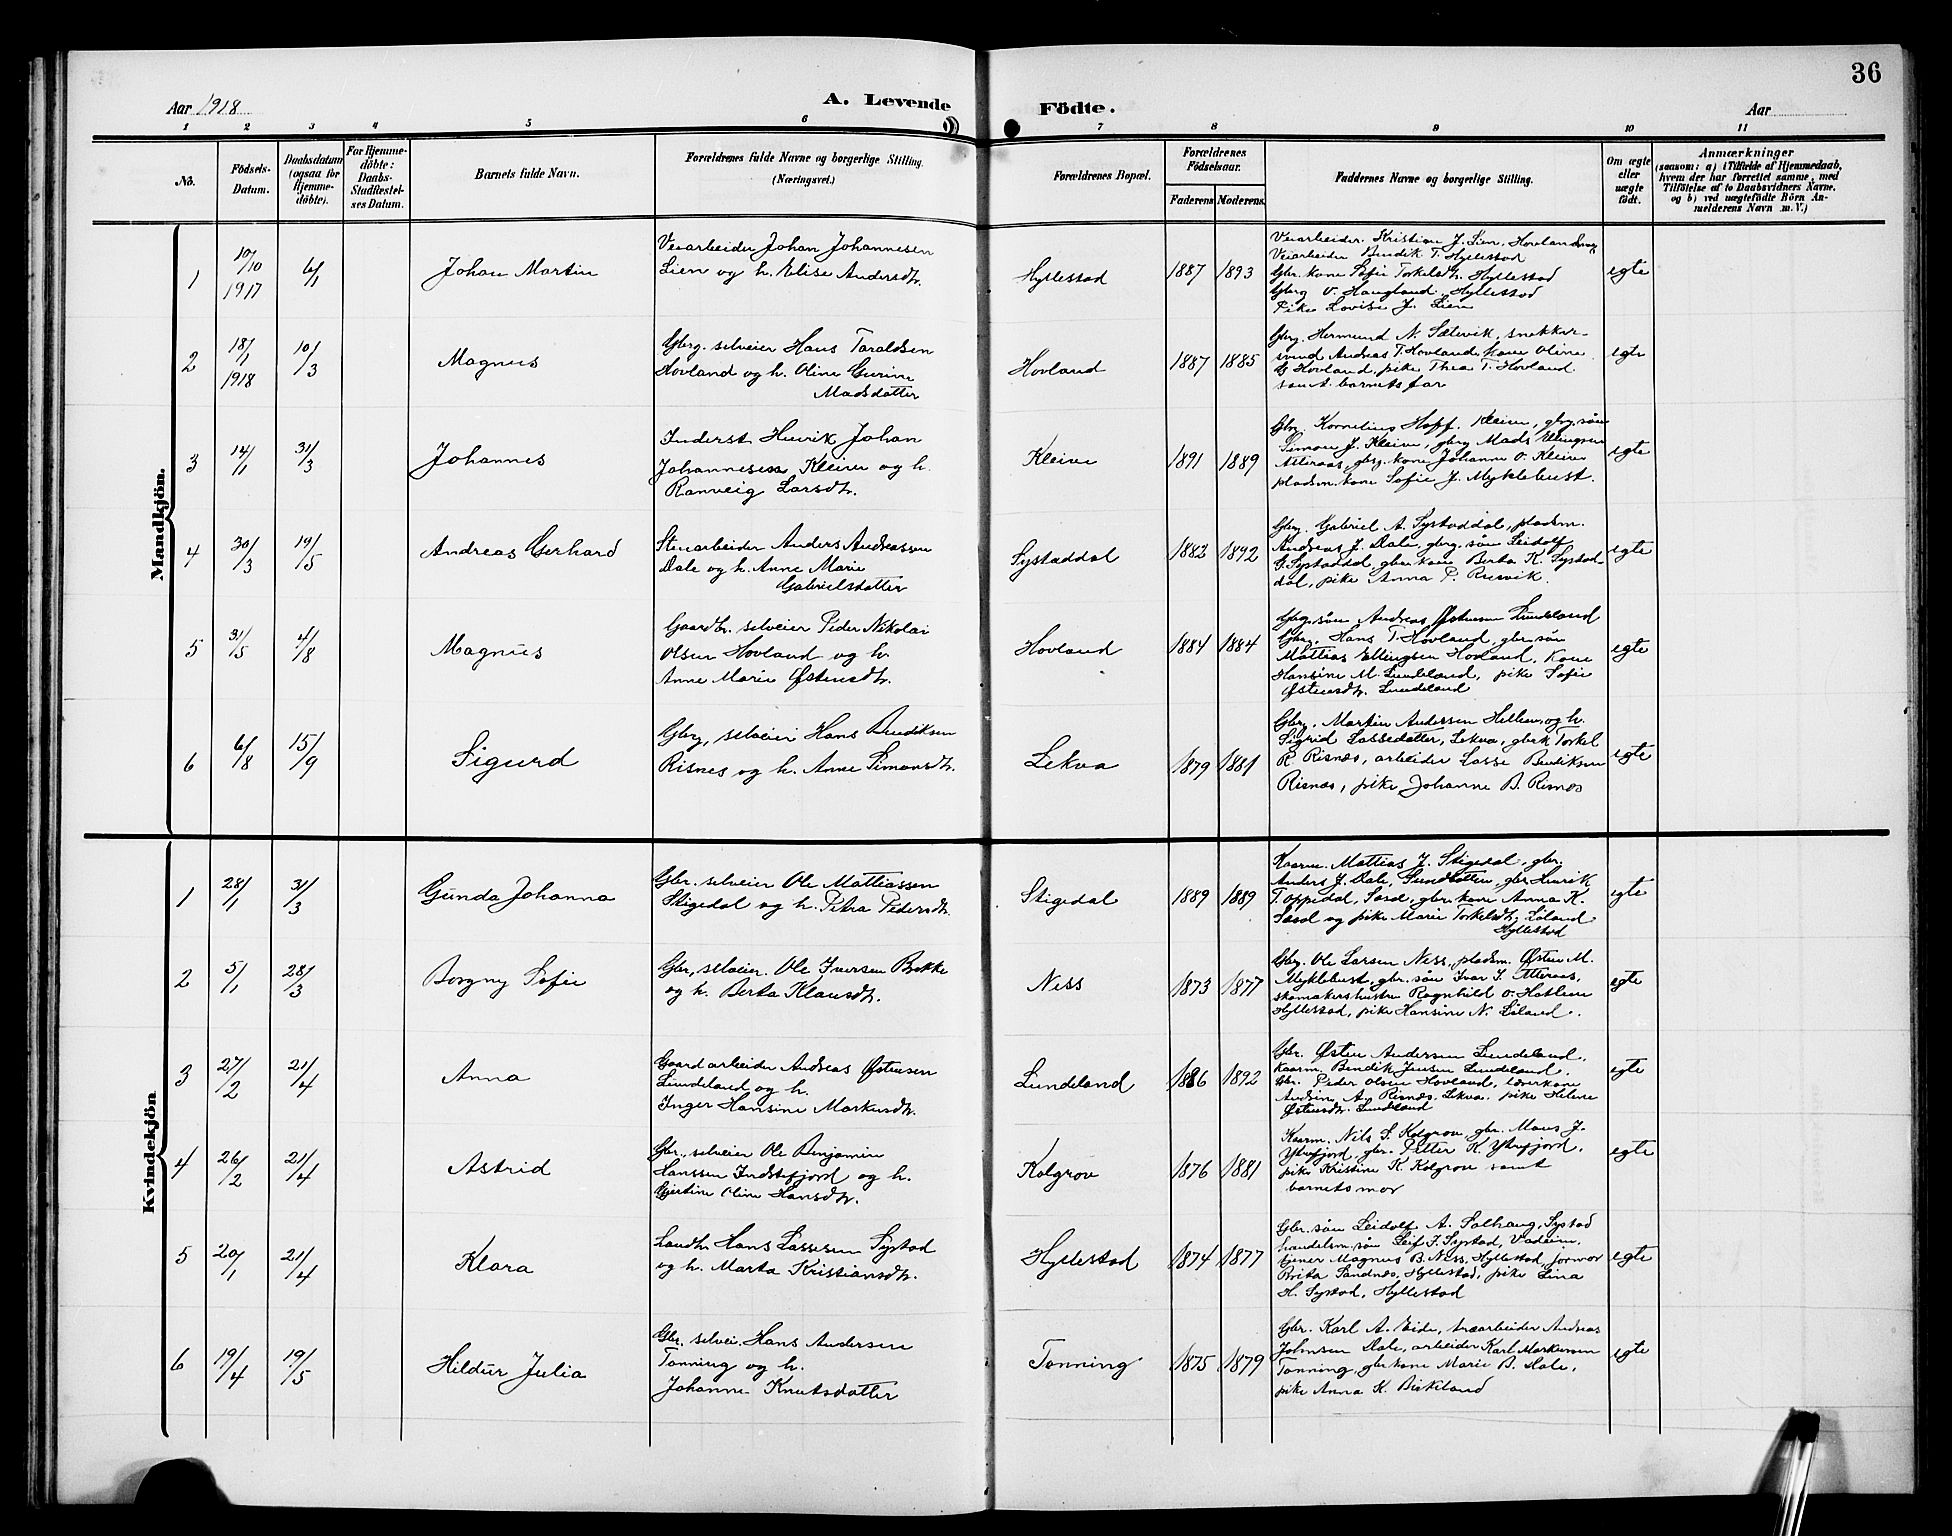 36
Aar 1918
A. Levende Födte.
Aar
1 2 3 4 5 6 7 8 9 10 11
No.
Födsels-
Datum.
Daabsdatum
(ogsaa for
Hjemme-
döbte).
For Hjemme-
döbte:
Daabs-
Stadfæstel-
ses Datum.
Barnets fulde Navn.
Forældrenes fulde Navne og borgerlige Stilling.
(Næringsvei.)
Forældrenes Bopæl.
Forældrenes
Födselsaar.
Faderens Moderens
Faddernes Navne og borgerlige Stilling.
Om ægte
eller
uægte
födt.
Anmærkninger
(saasom: a) i Tilfælde af Hjemmedaab,
hvem der har forrettet samme, med
Tilföielse af to Daabsvidners Navne.
og b) ved uægtefödte Börn An-
melderens Navn m. V.)
Mandkjön.
1
10/10
1917
6/1
Johan Martin
Veiarbeider Johan Johannesen
Lien og h. Elise Andersdtr.
Hyllestad
1887 1893
Veiarbeider Kristian J. Lien, Hovland
Veiarbeider Bendik T. Hyllestad
Gbr. kone Sofie Torkelsdtr. Hyllestad
Gbrg O. Haugland, Hyllestad
Pike Lovise J. Lien
egte
2
18/1
1918
10/3
Magnus
Gbrg. selveier Hans Taraldsen
Hovland og h. Oline Gurine
Madsdatter
Hovland
1887 1885
Gbrg. Hermund N. Sætevik, snekker-
svend Andreas T. Hovland, kone Oline
Hovland, pike Thea T. Hovland
samt barnets far
egte
3
14/1
31/3
Johannes
Inderst Henrik Johan
Johannesen Kleiven og h.
Ranveig Larsdtr.
Kleive
1891 1889
Gbrg. Kornelius Kleiven, gbrg. søn
Simon J. Kleive, gbrg Mads Ellingsen
Atteraas, gbrg. kone Johanne O. Kleive
pladsm. kone Sofie J. Myklebust.
egte
4
30/3
19/5
Andreas Gerhard
Stenarbeider Anders Andreassen
Dale og h. Anne Marie
Gabrielsdatter
Systaddal
1882 1892
Gbrg. Gabriel A. Systaddal, pladsm.
Andreas J. Dale, gbrg. søn Leidolf
G. Systaddal, gbr. kone Berta K. Systad-
dal, pike Anna P. Risevik.
egte
5
31/5
4/8
Magnus
Gaardbr. selveier Peder Nikolai
Olsen Hovland og h.
Anne Marie Østensdtr.
Hovland
1884 1884
Gbrg. søn Andreas Østensen Lundeland
Gbrg. Hans T. Hovland, gbr. søn
Mattias Ellingsen Hovland, kone
Hansine M. Lundeland, pike Sofie
Østensdtr. Lundeland
egte
6
6/8
15/9
Sigurd
Gbrg, selveier Hans Bendiksen
Risnes og h. Anne Simonsdtr.
Lekva
1879 1881
Gbrg. Martin Andersen Hellem, og h.
Sigrid Lassedatter, Lekva, gbrk Torkel
R. Risnes, arbeider Lasse Bendiksen
Risnæs, pike Johanne B. Risnes
egte
Kvindekjön
1
28/1
31/3
Gunda Johanna
Gbr. selveier Ole Mattiassen
Stigedal og h. Petra Pedersdtr.
Stigedal
1889 1889
Kaarm. Mattias J. Stigedal, gbr.
Anders J. Dale, gbr. Henrik
T. Oppidal, gbr. kone Anna K.
og pike Marie Torkelsdtr. Løland
Hyllestad
egte
2
5/1
28/3
Borgny Sofie
Gbr, selveier. Ole Iversen Brekke
og h. Berta Klausdtr.
Ness
1873 1877
Gbrg. Ole Larsen Ness, pladsm. Østen M.
Myklebust, gbr. søn Ivar I. Atteraas,
skomakershustru Ragnhild O. Hatlem
Hyllestad, pike Hansine N. Løland.
egte
3
27/2
21/4
Anna
Gaardarbeider Andreas Østensen
Lundeland og h.
Inger Hansine Markusdtr.
Lundeland
1886 1892
Gbr. Østen Andersen Lundeland,
Kaarm. Bendik Jensen Lundeland,
Gbr. Peder Olsen Hovland,
A. Risnes, Lekva, pike Helene
Østensdtr. Lundeland
egte
4
26/2
21/4
Astrid
Gbr., selveier Ole Benjamin
Hanssen Indrefjord og h.
Gjertine Oline Hansdtr.
Kolgrov
1876 1881
Kaarm. Nils S. Kolgrov, gbr. Mons J.
Ytrefjord, gbr. Petter K. Ytrefjord,
pike Kristine K. Kolgrov samt
barnets mor
egte
5
20/1
21/4
Klara
Landh. Hans Lassesen Systad
og h. Marta Kristiansdtr.
Hyllestad
1874 1877
Gbr. søn Leidolf A. Solhaug, Systad
handelsm. søn Leif J. Systad, Vadeim,
tjener Magnus B. Ness, Hyllestad, jormor
Brita Sandnes, Hyllestad, pike Lina
H. Systad, Hyllestad
egte
6
19/4
19/5
Hildur Julia
Gbr. selvei. Hans Andersen
Tonning og h.
Johanne Knutsdatter
Tonning
1875 1879
Gbr. Karl A. Eide, træarbeider Andreas
Johnsen Dale, arbeider Karl Markussen
Tonning, gbr kone Marie B. Dale,
pike Anna K. Birkeland
egte